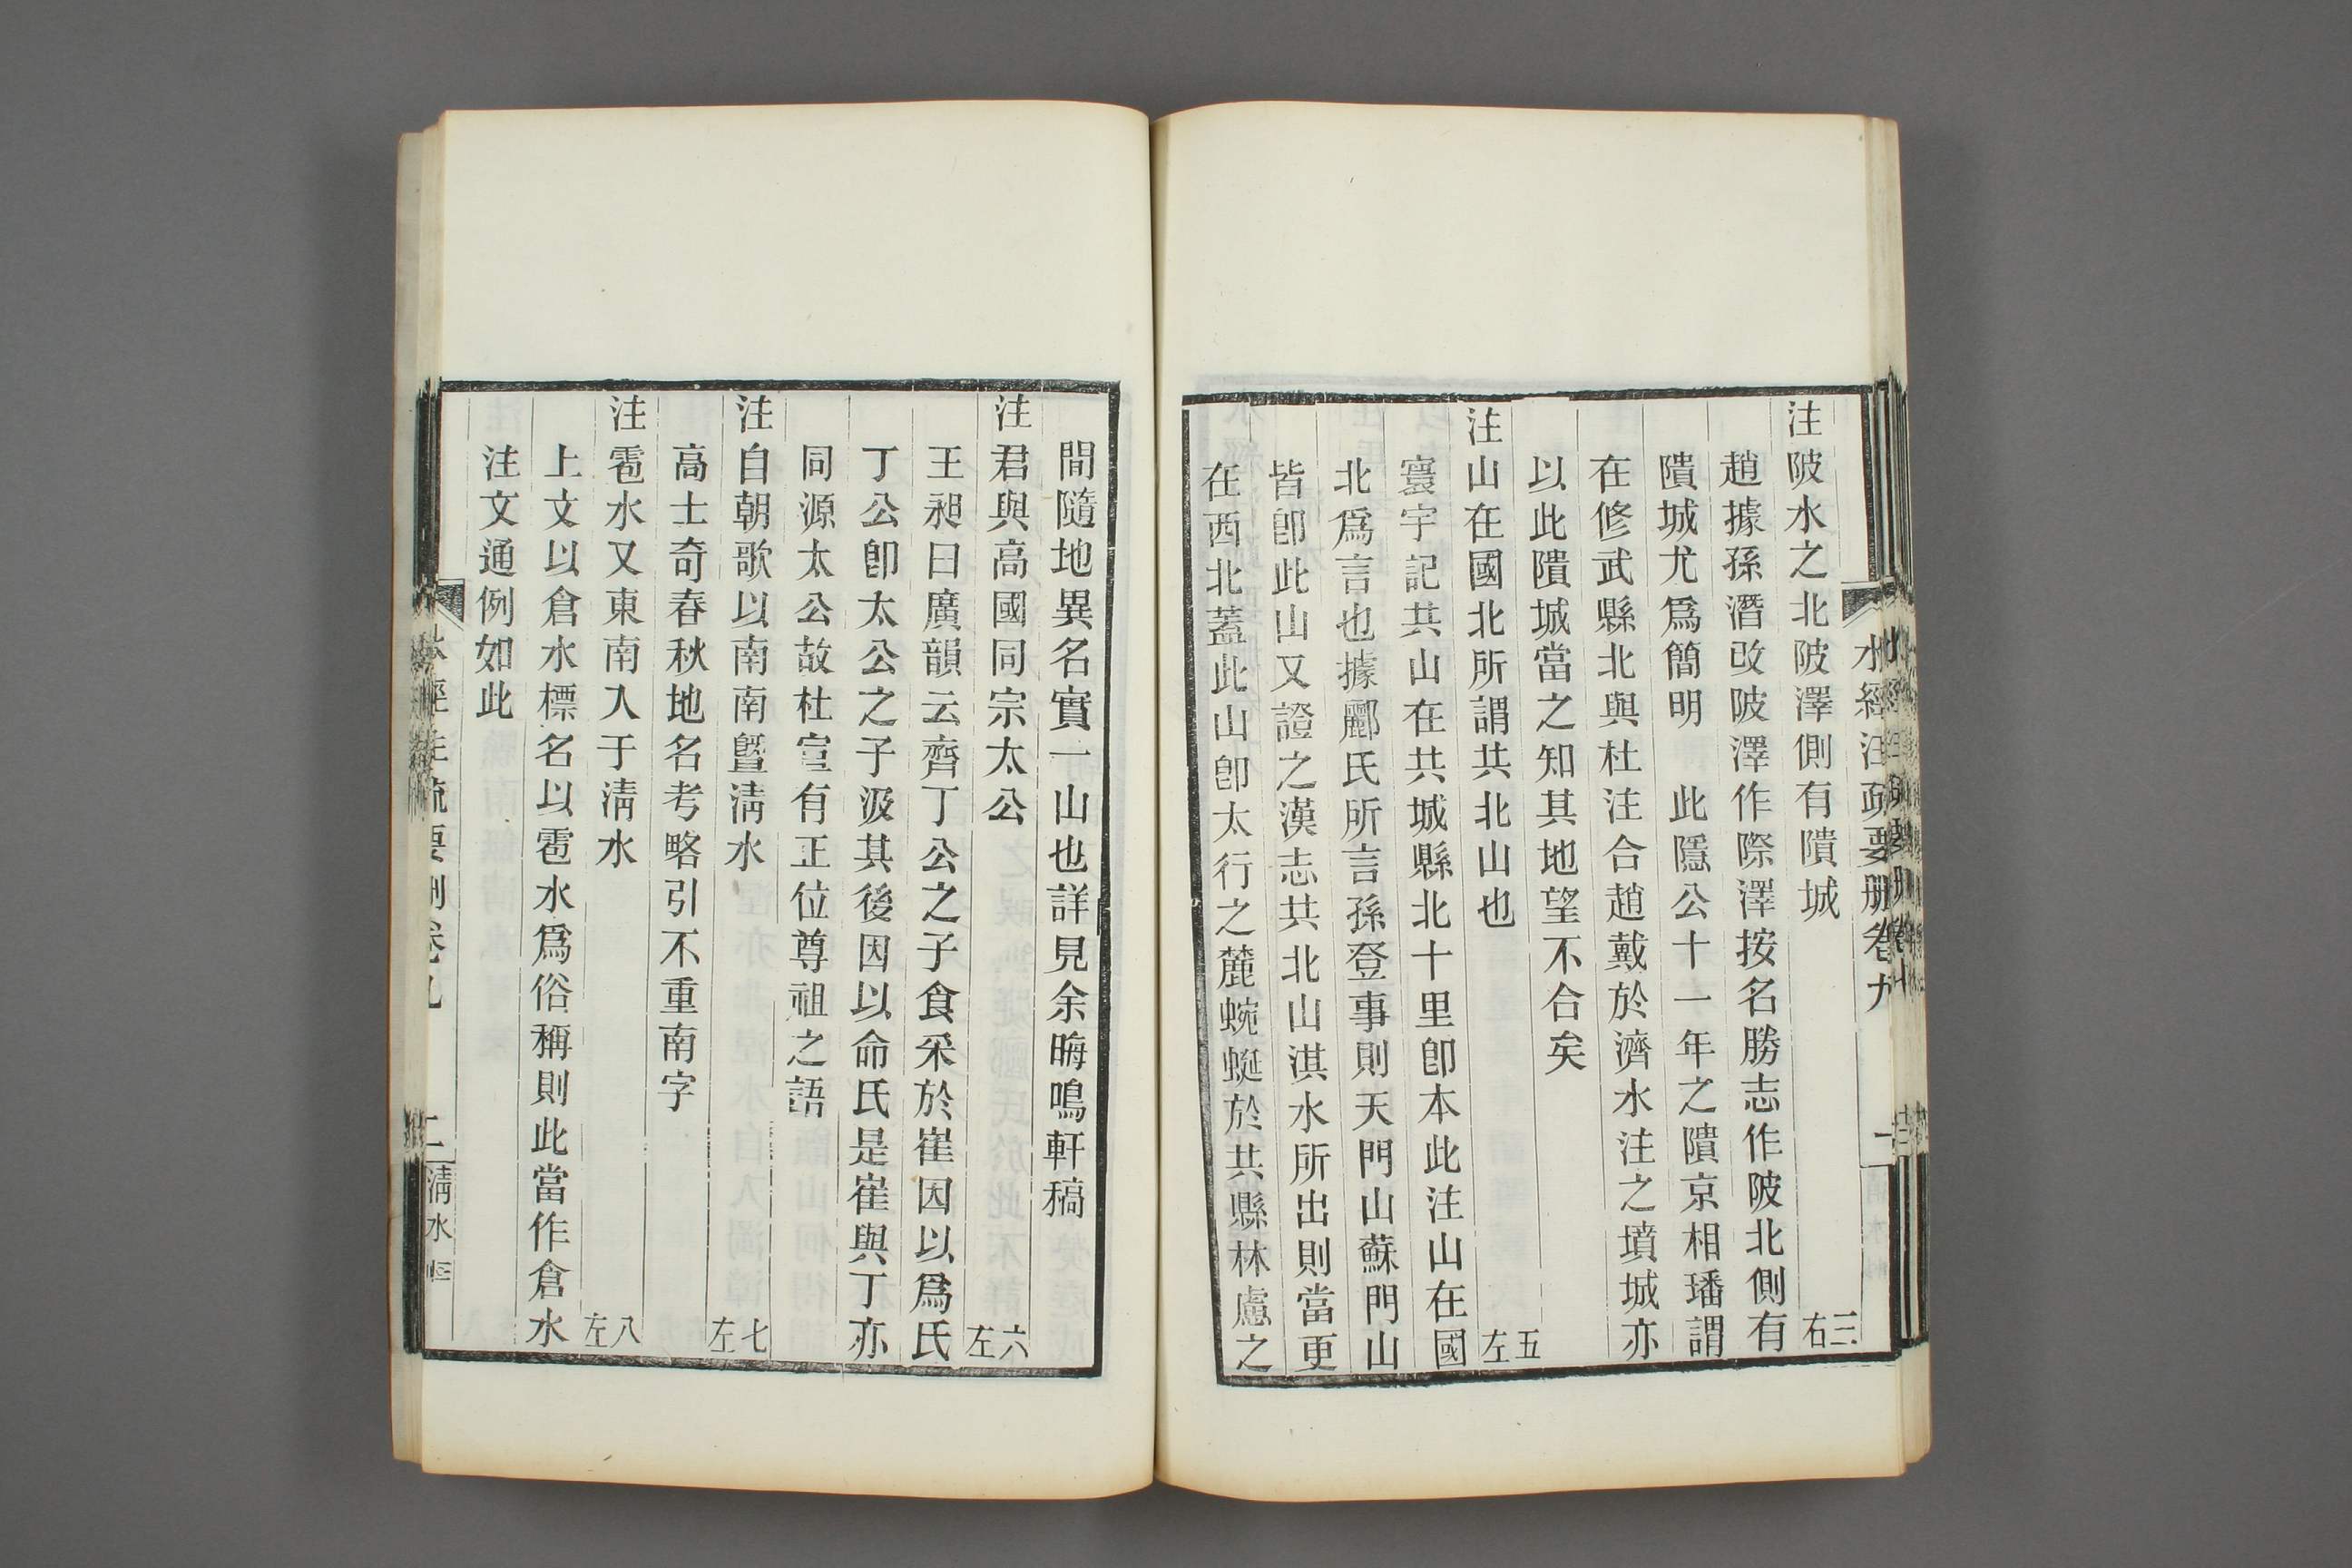 水經注疏要刪卷九
一
注陂水之北陂澤側有隤城
三右
趙據孫潛改陂澤作際澤按名勝志作陂北側有
隤城尤爲簡明　此隱公十一年之隤京相璠謂
在修武縣北與杜注合趙戴於濟水注之墳城亦
以此隤城當之知其地望不合矣
注山在國北所謂共北山也
五左
寰宇記共山在共城縣北十里卽本此注山在國
北爲言也據酈氏所言孫登事則天門山蘇門山
皆卽此山又證之漢志共北山淇水所出則當更
在西北蓋此山卽太行之麓蜿蜒於共縣林慮之
間隨地異名實一山也詳見余晦鳴軒稿
注君與高國同宗太公
六左
王昶曰廣韻云齊丁公之子食采於崔因以爲氏
丁公卽太公之子汲其後因以命氏是崔與丁亦
同源太公故杜宣有正位尊祖之語
注自朝歌以南南曁淸水
七左
高士奇春秋地名考略引不重南字
注雹水又東南入于淸水
八左
上文以倉水標名以雹水爲俗稱則此當作倉水
注文通例如此
水經注疏要刪卷九
二
淸水